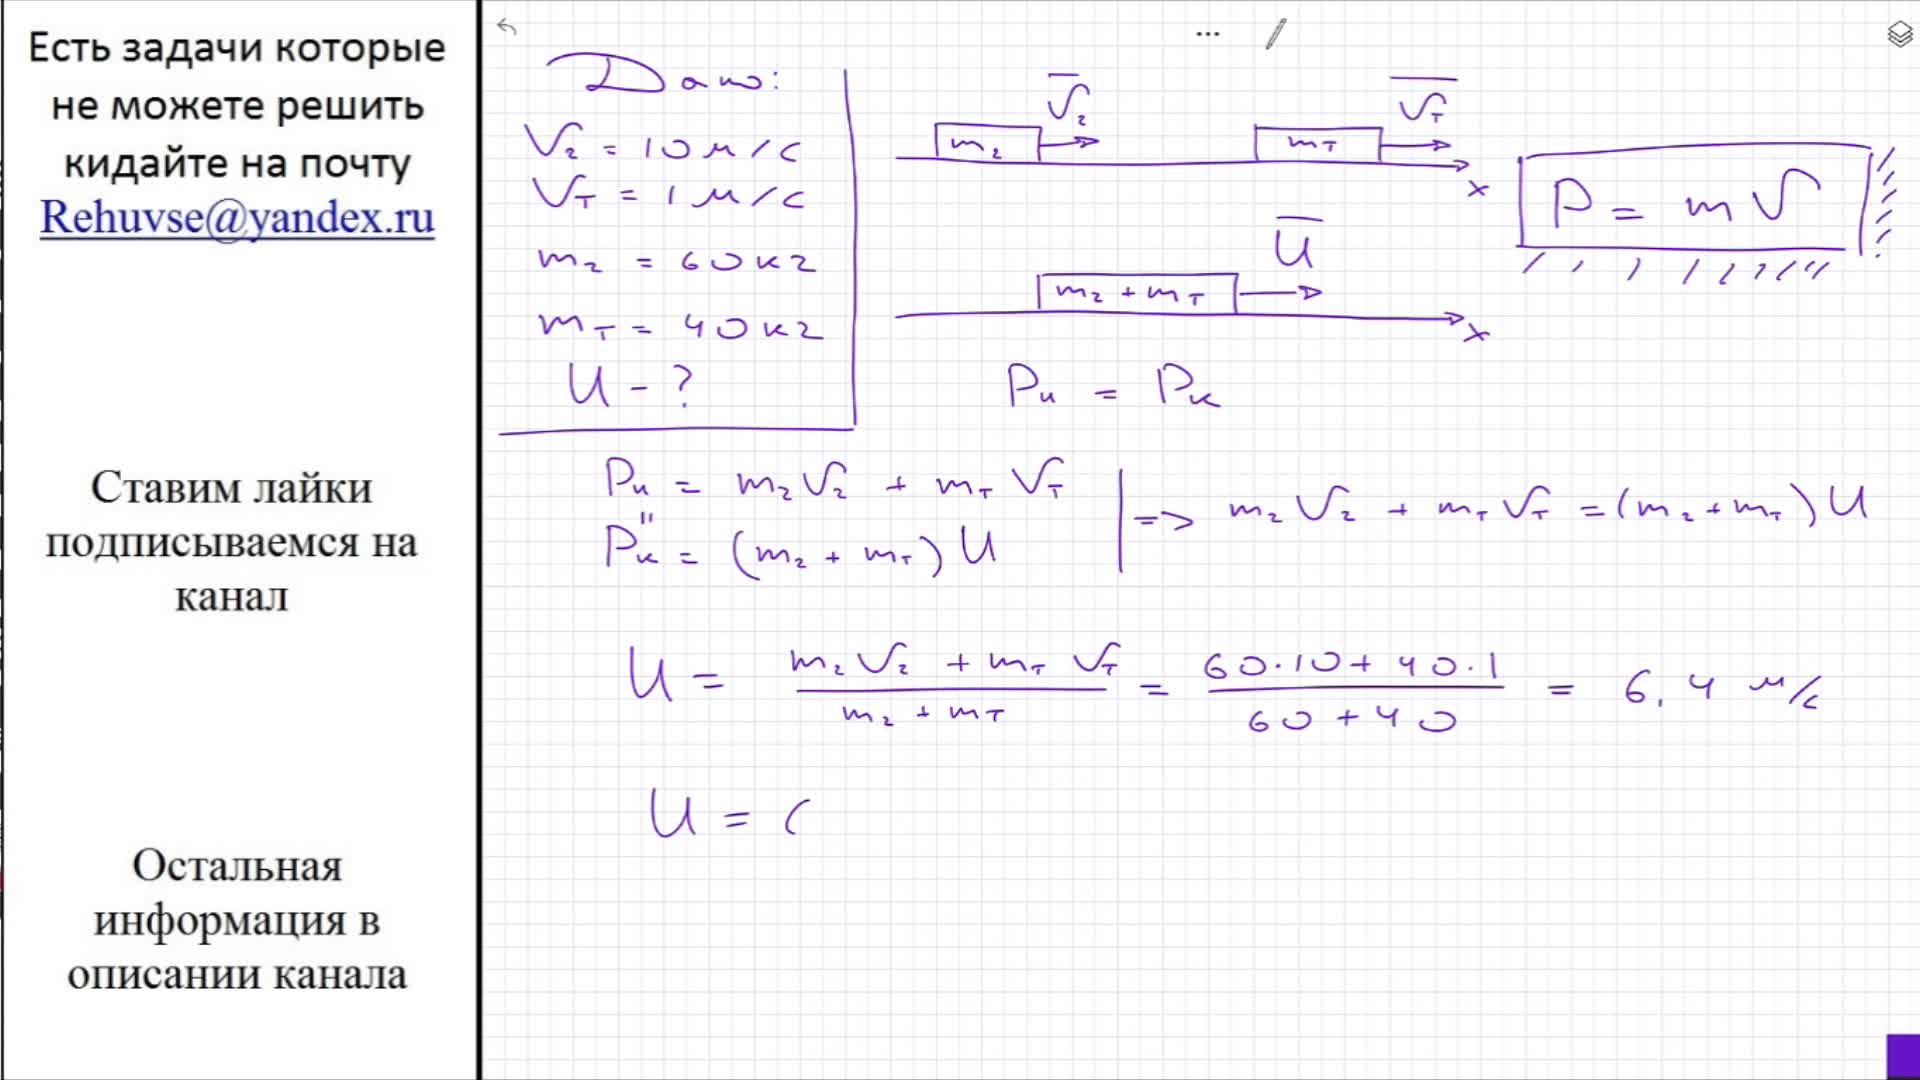 Есть задачи которые
не можете решить
кидайте на почту
Rehuvse@yandex.ru
Ставим лайки
подписываемся на
канал
Остальная
информация в
описании канала
Дано:
V₂ = 10 м/с
V_T = 1 м/с
m₂ = 60 кг
m_T = 40 кг
U - ?
m₂ V₂ m_T V_T x
P = m V
U
m₂ + m_T x
Pн = Pк
Pн = m₂V₂ + m_T V_T
"
Pк = (m₂ + m_T) U
=> m₂ V₂ + m_T V_T = (m₂ + m_T) U
U = (m₂V₂ + m_T V_T) / (m₂ + m_T) = (60·10 + 40·1) / (60 + 40) = 6,4 м/с
U = (